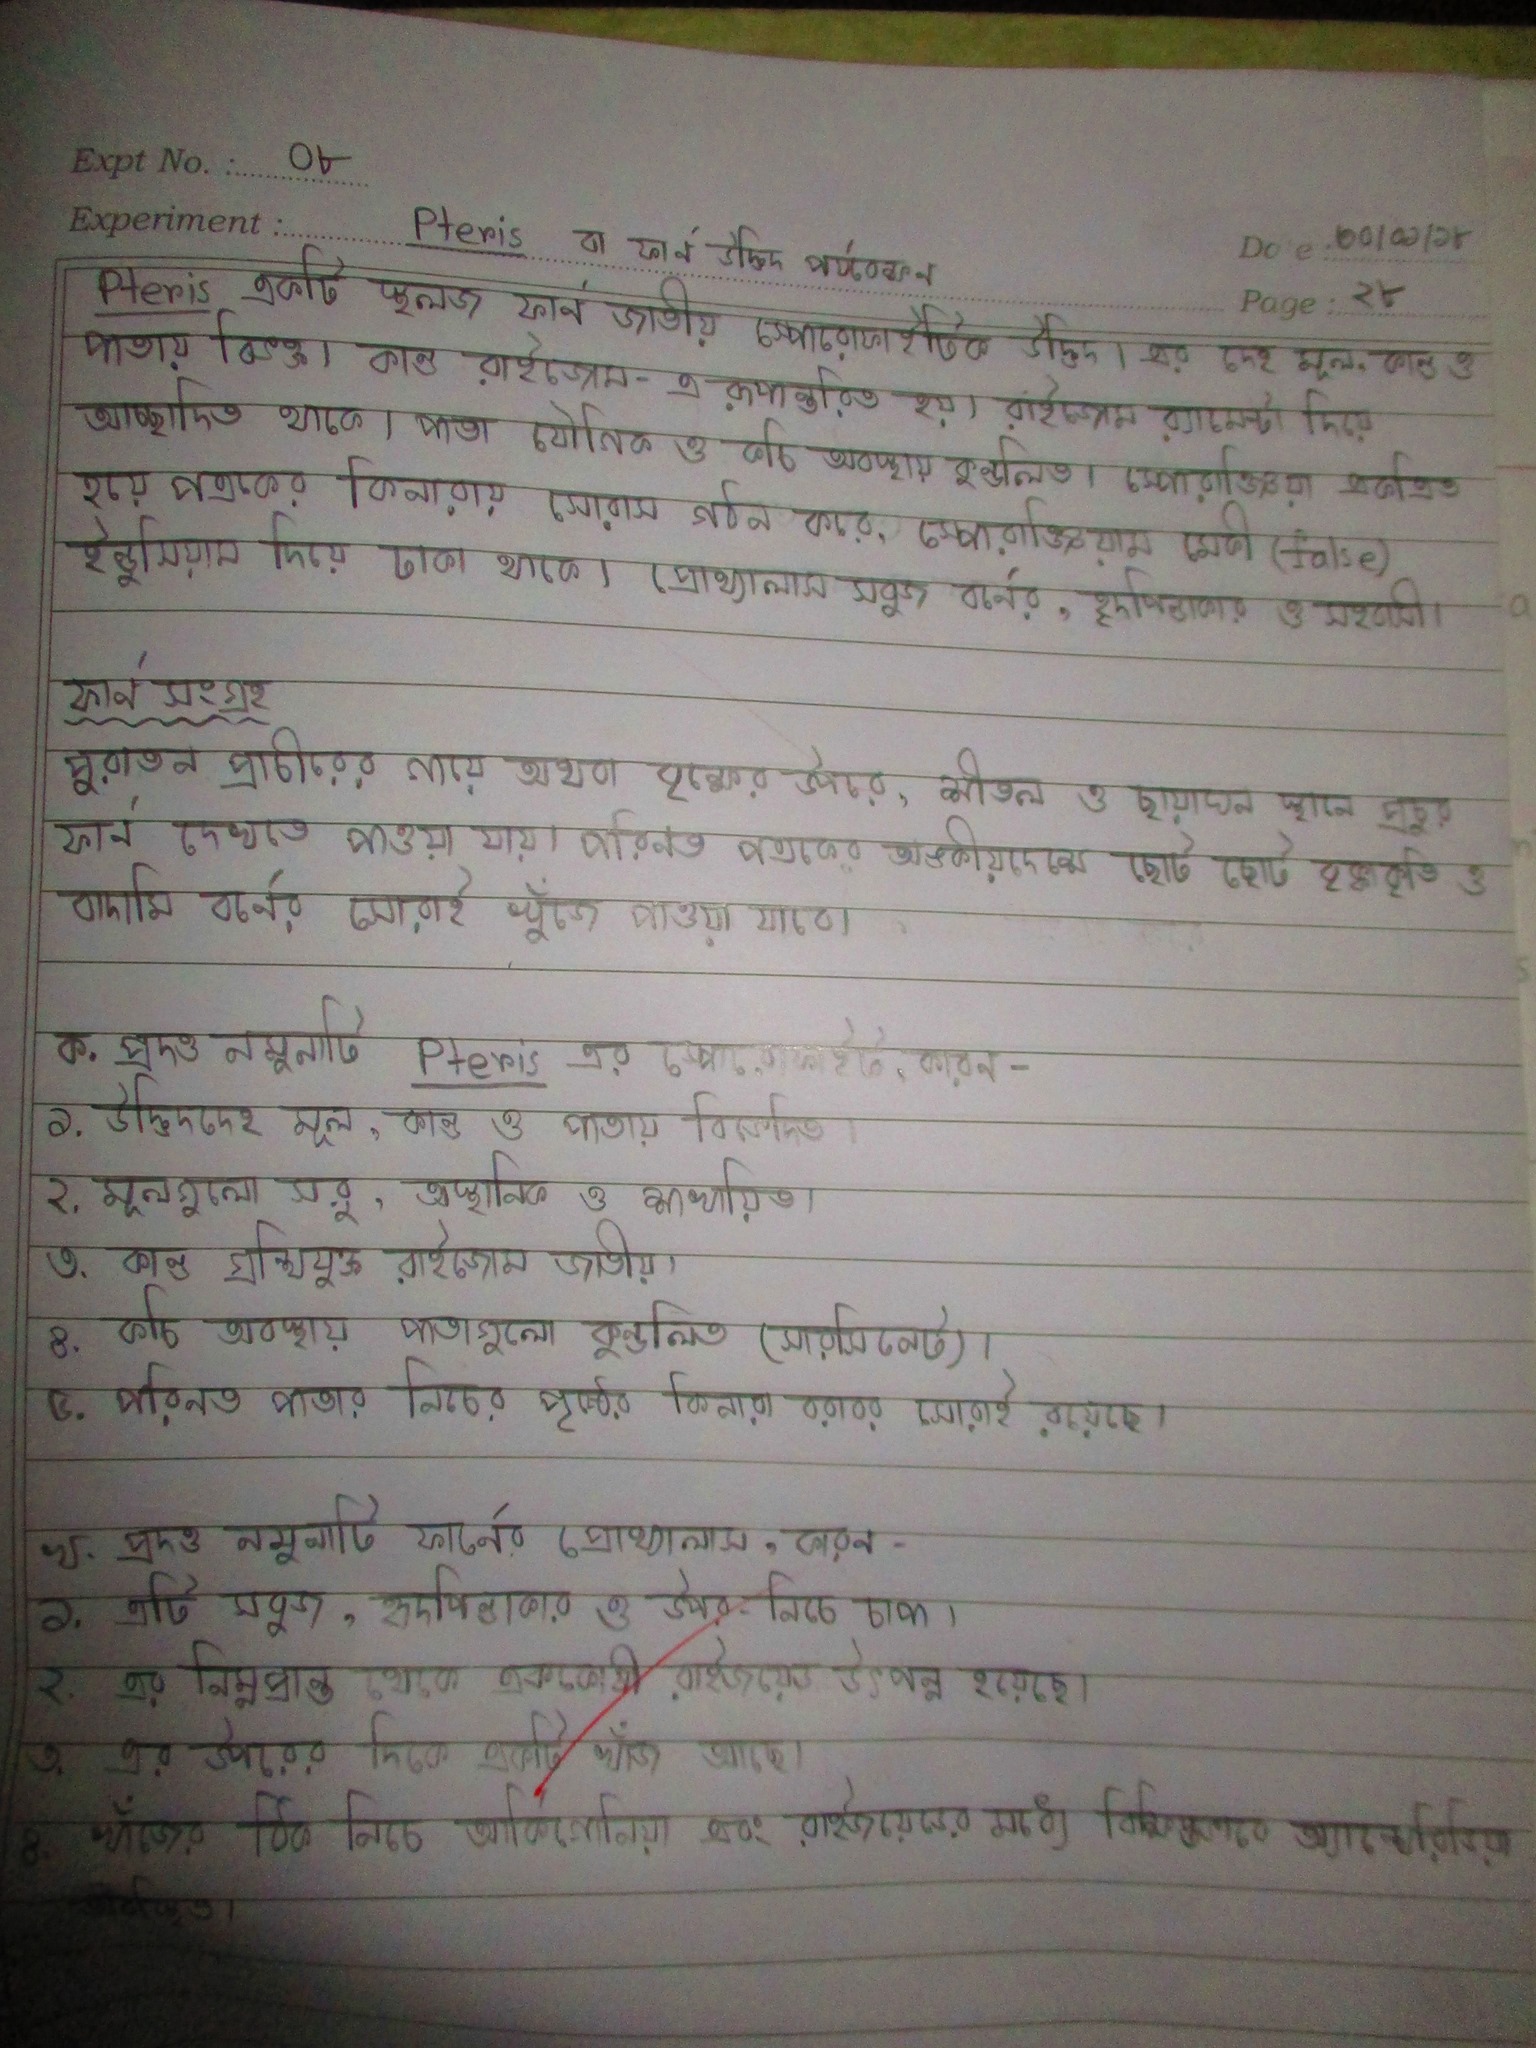 Expt No. : ০৮
Experiment : Pteris বা ফার্ন উদ্ভিদ পর্যবেক্ষন
Page : ২৮
Pteris একটি স্থলজ ফার্ন জাতীয় স্পোরোফাইটিক উদ্ভিদ। এর দেহ মূল, কান্ড ও
পাতায় বিভক্ত। কান্ড রাইজোম-এ রূপান্তরিত হয়। রাইজোম র‍্যামেন্টা দিয়ে
আচ্ছাদিত থাকে। পাতা যৌগিক ও কচি অবস্থায় কুন্ডলিত। স্পোরাঞ্জিয়া একত্রিত
হয়ে পত্রকের কিনারায় সোরাস গঠন করে, স্পোরাঞ্জিয়াম মেকী (false)
ইন্ডুসিয়াম দিয়ে ঢাকা থাকে। প্রোথ্যালাস সবুজ বর্নের, হৃদপিন্ডাকার ও সহবাসী।
ফার্ন সংগ্রহ
পুরাতন প্রাচীরের গায়ে অথবা বৃক্ষের উপরে, শীতল ও ছায়াঘন স্থানে প্রচুর
ফার্ন দেখতে পাওয়া যায়। পরিনত পত্রকের অঙ্কীয়দেশে ছোট ছোট বৃক্কাকৃতি ও
বাদামি বর্নের সোরাই খুঁজে পাওয়া যাবে।
ক. প্রদত্ত নমুনাটি Pteris এর স্পোরোফাইট, কারন-
১. উদ্ভিদদেহ মূল, কান্ড ও পাতায় বিভেদিত।
২. মূলগুলো সরু, অস্থানিক ও শাখায়িত।
৩. কান্ড গ্রন্থিযুক্ত রাইজোম জাতীয়।
৪. কচি অবস্থায় পাতাগুলো কুন্ডলিত (সারসিনেট)।
৫. পরিনত পাতার নিচের পৃষ্ঠের কিনারা বরাবর সোরাই রয়েছে।
খ. প্রদত্ত নমুনাটি ফার্নের প্রোথ্যালাস, কারন-
১. এটি সবুজ, হৃদপিন্ডাকার ও উপর-নিচে চাপা।
২. এর নিম্নপ্রান্ত থেকে এককোষী রাইজয়েড উৎপন্ন হয়েছে।
৩. এর উপরের দিকে একটি খাঁজ আছে।
৪. খাঁজের ঠিক নিচে আর্কিগোনিয়া এবং রাইজয়েডের মধ্যে বিক্ষিপ্তভাবে অ্যান্থেরিডিয়া